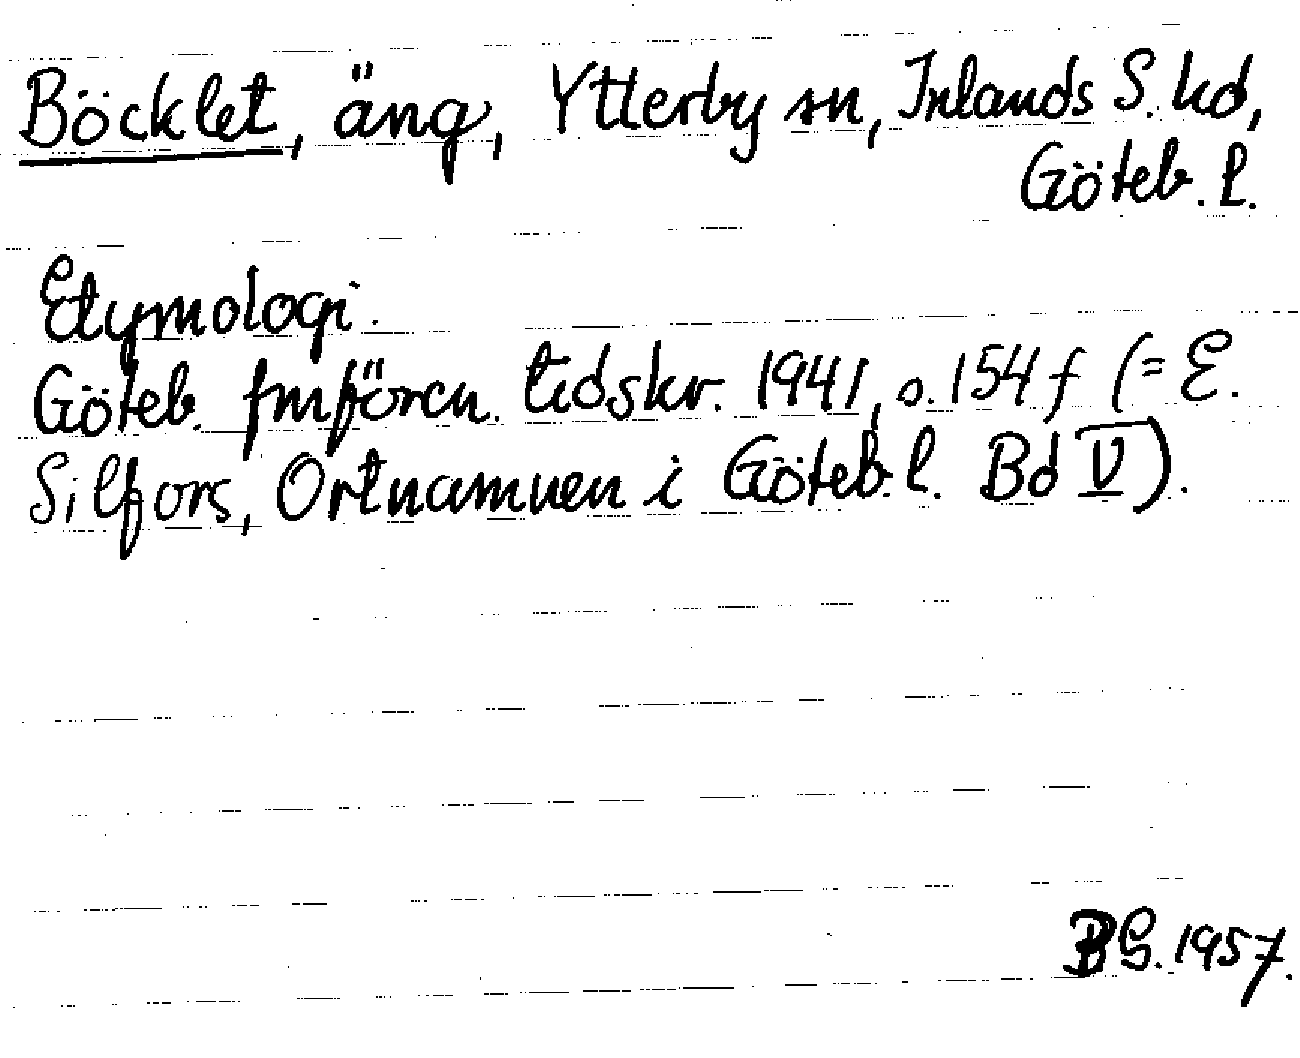 Böcklet, äng, Ytterby sn, Inlands S. hd,
Göteb. l.
Etymologi.
Göteb. fmfören. tidskr. 1941, s. 154 f (= E.
Silfors, Ortnamnen i Göteb. l. Bd V).
BG. 1957.